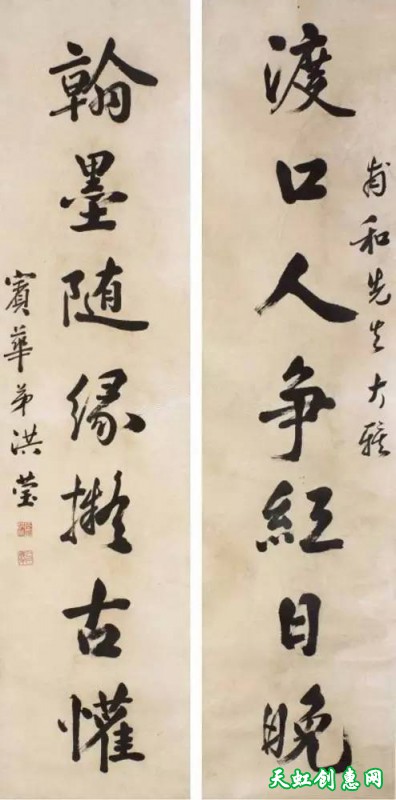 甫和先生大雅
渡口人争紅日晚
翰墨随緣擬古懽
賓華弟洪瑩
天虹创惠网